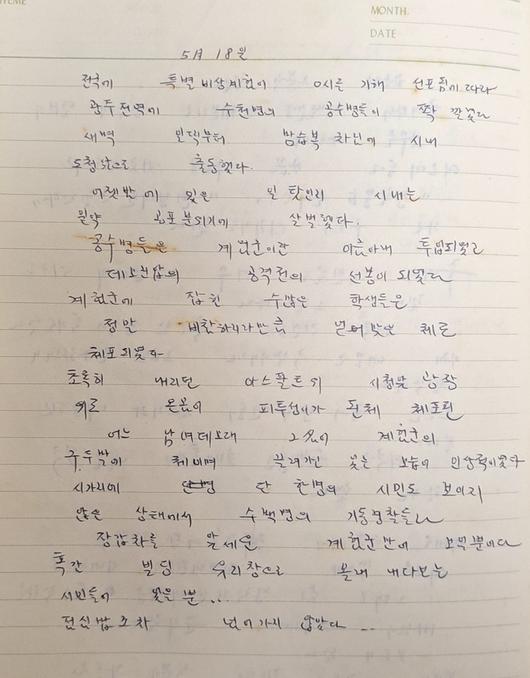 MONTH.
DATE
5月 18일
전국에 특별비상계엄이 0시를 기해 선포됨에 따라
광주전역에 수천명의 공수병들이 쫙 깔렸다
새벽 부터 차림에 시내
도청앞으로 출동했다.
어젯밤에 있은 일 탓인지 시내는
공포분위기에 살벌했다.
공수병들은 계엄군이란 이름아래 투입되었고
데모진압의 공격전의 선봉이 되었다
계엄군에 잡힌 수많은 학생들은
정말 비참하리만큼 얻어맞은 채로
체포되었다
초록히 내리던 아스팔트의 시청앞 광장
위로 온몸이 피투성이가 된채 체포된
어느 남녀데모대 계엄군의
구두발에 채이며 끌려가던 모습이 인상적이었다
시가지에 단 한명의 시민도 보이지
않은 상태에서 수백명의 기동경찰들과
장갑차를 앞세운 계엄군 뿐이다
폭간 빌딩 유리창으로 내다보는
시민들이 있을 뿐...
전신밥조차 넘어가지 않았다 ...